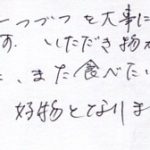 一つづつを大事に
す。いただき物
、また食べたい
好物となりま